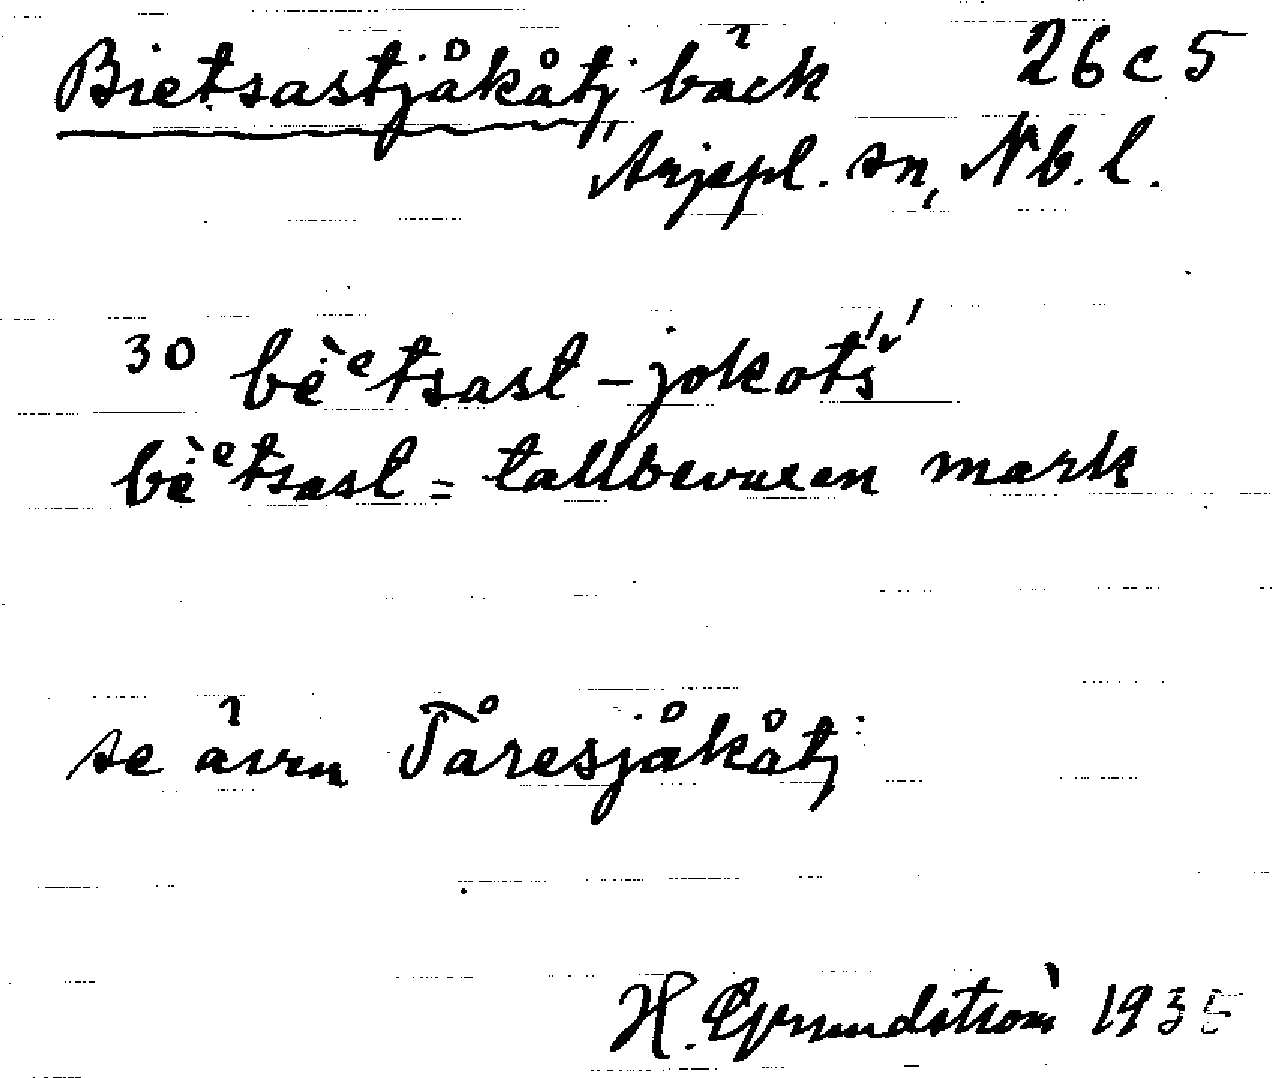 Bietsastjåkåtj, bäck 26 c 5
Arjepl. sn, Nb. l.
30 bèᵉtsast-jokotš́ʹ
bèᵉtsast = tallbevuxen mark
se även Tåresjåkåtj
H. Grundström 1935